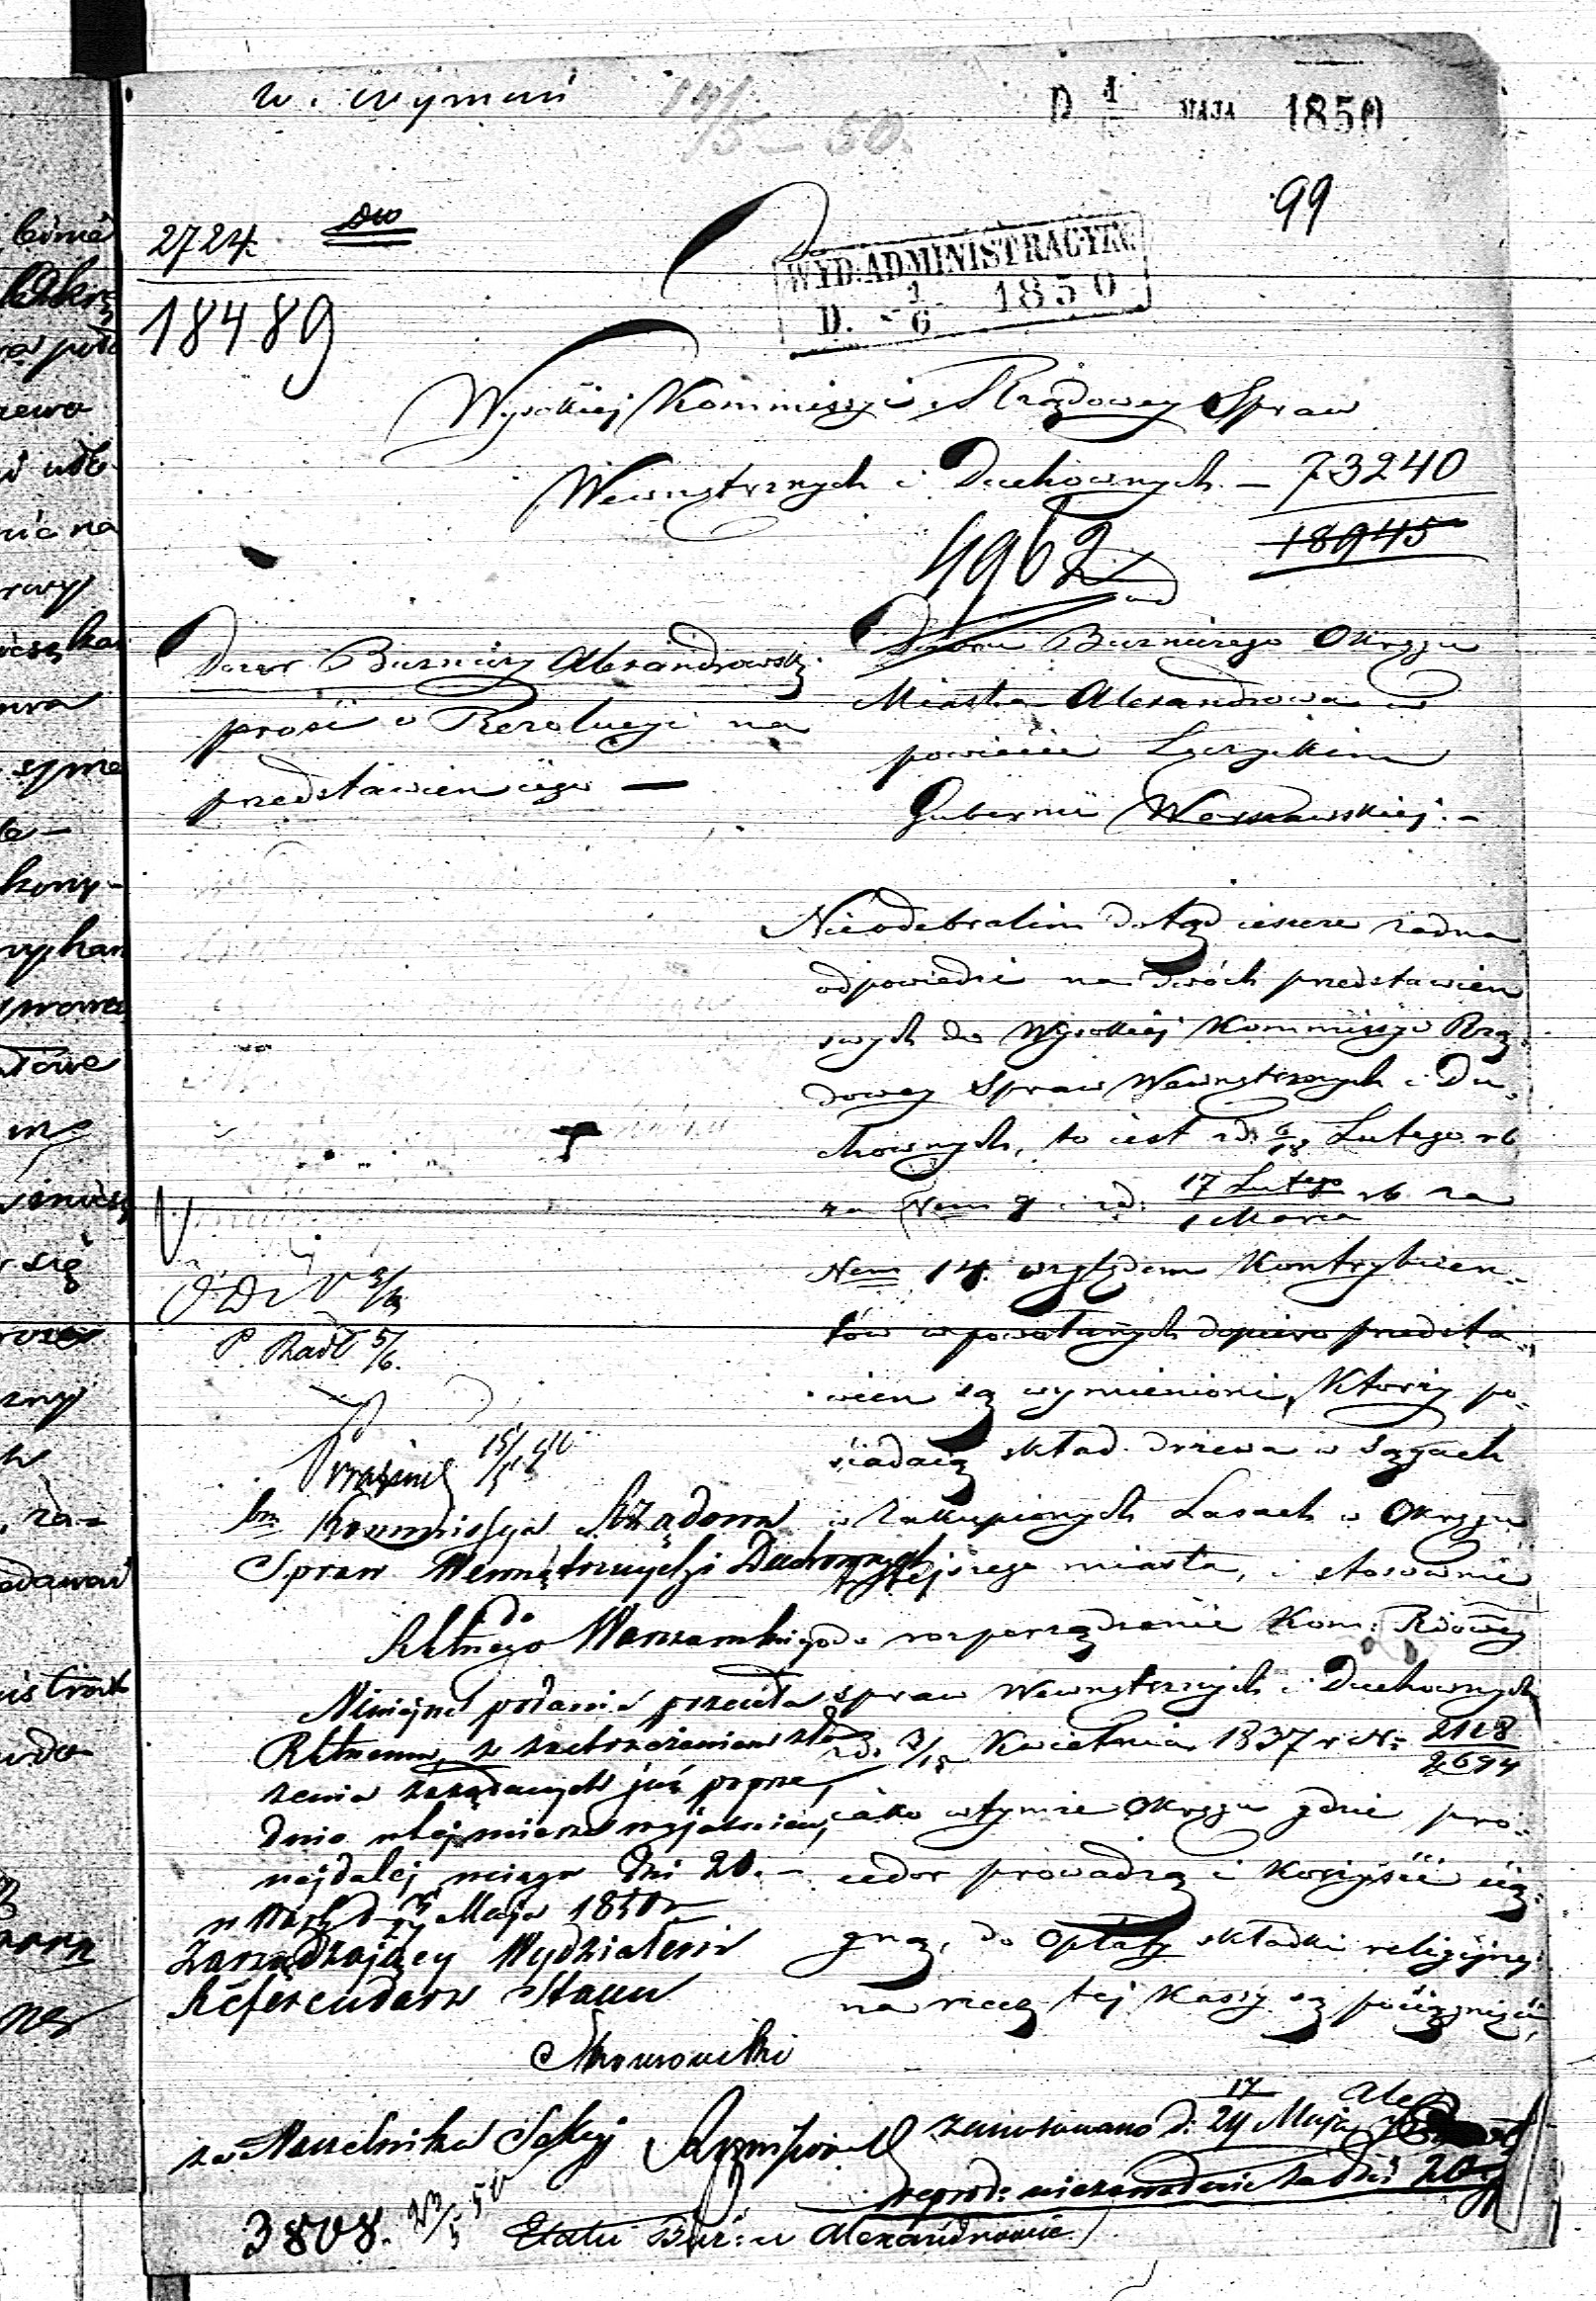 w. wymian
19/5 – 50.
D 1 MAJA 1850
99
2724.
18489
Do
WYD. ADMINISTRACYJNY
D. - 1/6 1850
Wysokiej Kommissyi Rządowey Spraw
Wewnętrznych i Duchownych. – 73240
4962
18945
Dozór Bużniczy Alexandrowski
prosi o Rezolucyi na
przedstawien iego —
Dozoru Bużniczego Okręgu
Miasta Alexandrowa w
powiecie Łęczyckim
Gubernii Warszawskiej. –
Nieodebralim dotąd ieszcze żadna
odpowiedzi na dwóch przedstawien
swych do Wysokiej Kommissyi Rzą-
dowey Spraw Wewnętrznych i Du-
chownych, to iest z d. 6/18 Lutego rb
za Nem 9 i z d. 17 Lutego/1 Marca rb za
Nem 14. względem Kontrybuen-
tów w powołanych dopiero przedsta-
wien są wymienioni, Którzy po-
siadaią skład drzewa w Sągach
w zakupionych Lasach w Okręgu
tutejszego miasta, i stosownie
do rozporządzenie Kom: Rdowey
spraw Wewnętrznych i Duchownych
z d. 3/15 Kwietnia 1837 r N: 2128/2694
iako w tymże Okręgu gdzie pro-
ceder prowadzą i Korzyście cią-
gną, do Opłaty składki religijney
na rzecz tej Kassy są pociągnięci,
Ale
P. Radl 5/6.
Kommissya Rządowa
Spraw Wewnętrznych i Duchownych
do
Rktnego Warszawskiego
Niniejsze podanie przesyła
Rktnemu, z zastrzeżeniem zło-
żenia zażądanych już poprze-
dnio w tej mierze wyjaśnień,
najdalej w ciągu dni 20. –
w Warsz. d. Maja 1850 r
Zarządzający Wydziałem
Referendarz Stanu
za Naczelnika Sekcyi
zanotowano d: 17/29 Maja
3808. 23/5 50
Etatu Buź: w Alexandrowie